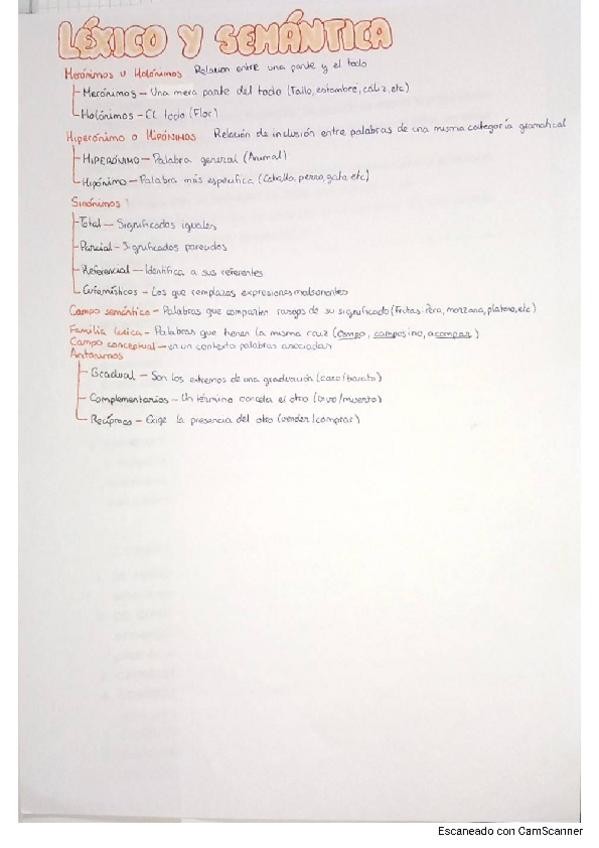 LÉXICO Y SEMÁNTICA
Merónimos u Holónimos Relación entre una parte y el todo
Merónimos - Una mera parte del todo (Tallo, estambre, cáliz, etc)
Holónimos - El todo (Flor)
Hiperónimo o Hipónimos Relación de inclusión entre palabras de una misma categoría gramatical
HIPERÓNIMO - Palabra general (Animal)
Hipónimo - Palabra más especifica (Caballo, perro, gato etc)
Sinónimos
Total - Significados iguales
Parcial - Significados parecidos
Referencial - Identifica a sus referentes
Eufemísticos - Los que remplazas expresiones malsonantes
Campo semántico - Palabras que comparten rasgos de su significado (Frutas: Pera, manzana, platano, etc)
Familia léxica - Palabras que tienen la misma raiz (campo, campesino, acampar)
Campo conceptual - en un contexto palabras asociadas
Antónimos
Gradual - Son los extremos de una graduación (caro/barato)
Complementarios - Un término cancela el otro (vivo/muerto)
Recíproco - Exige la presencia del otro (vender/comprar)
Escaneado con CamScanner